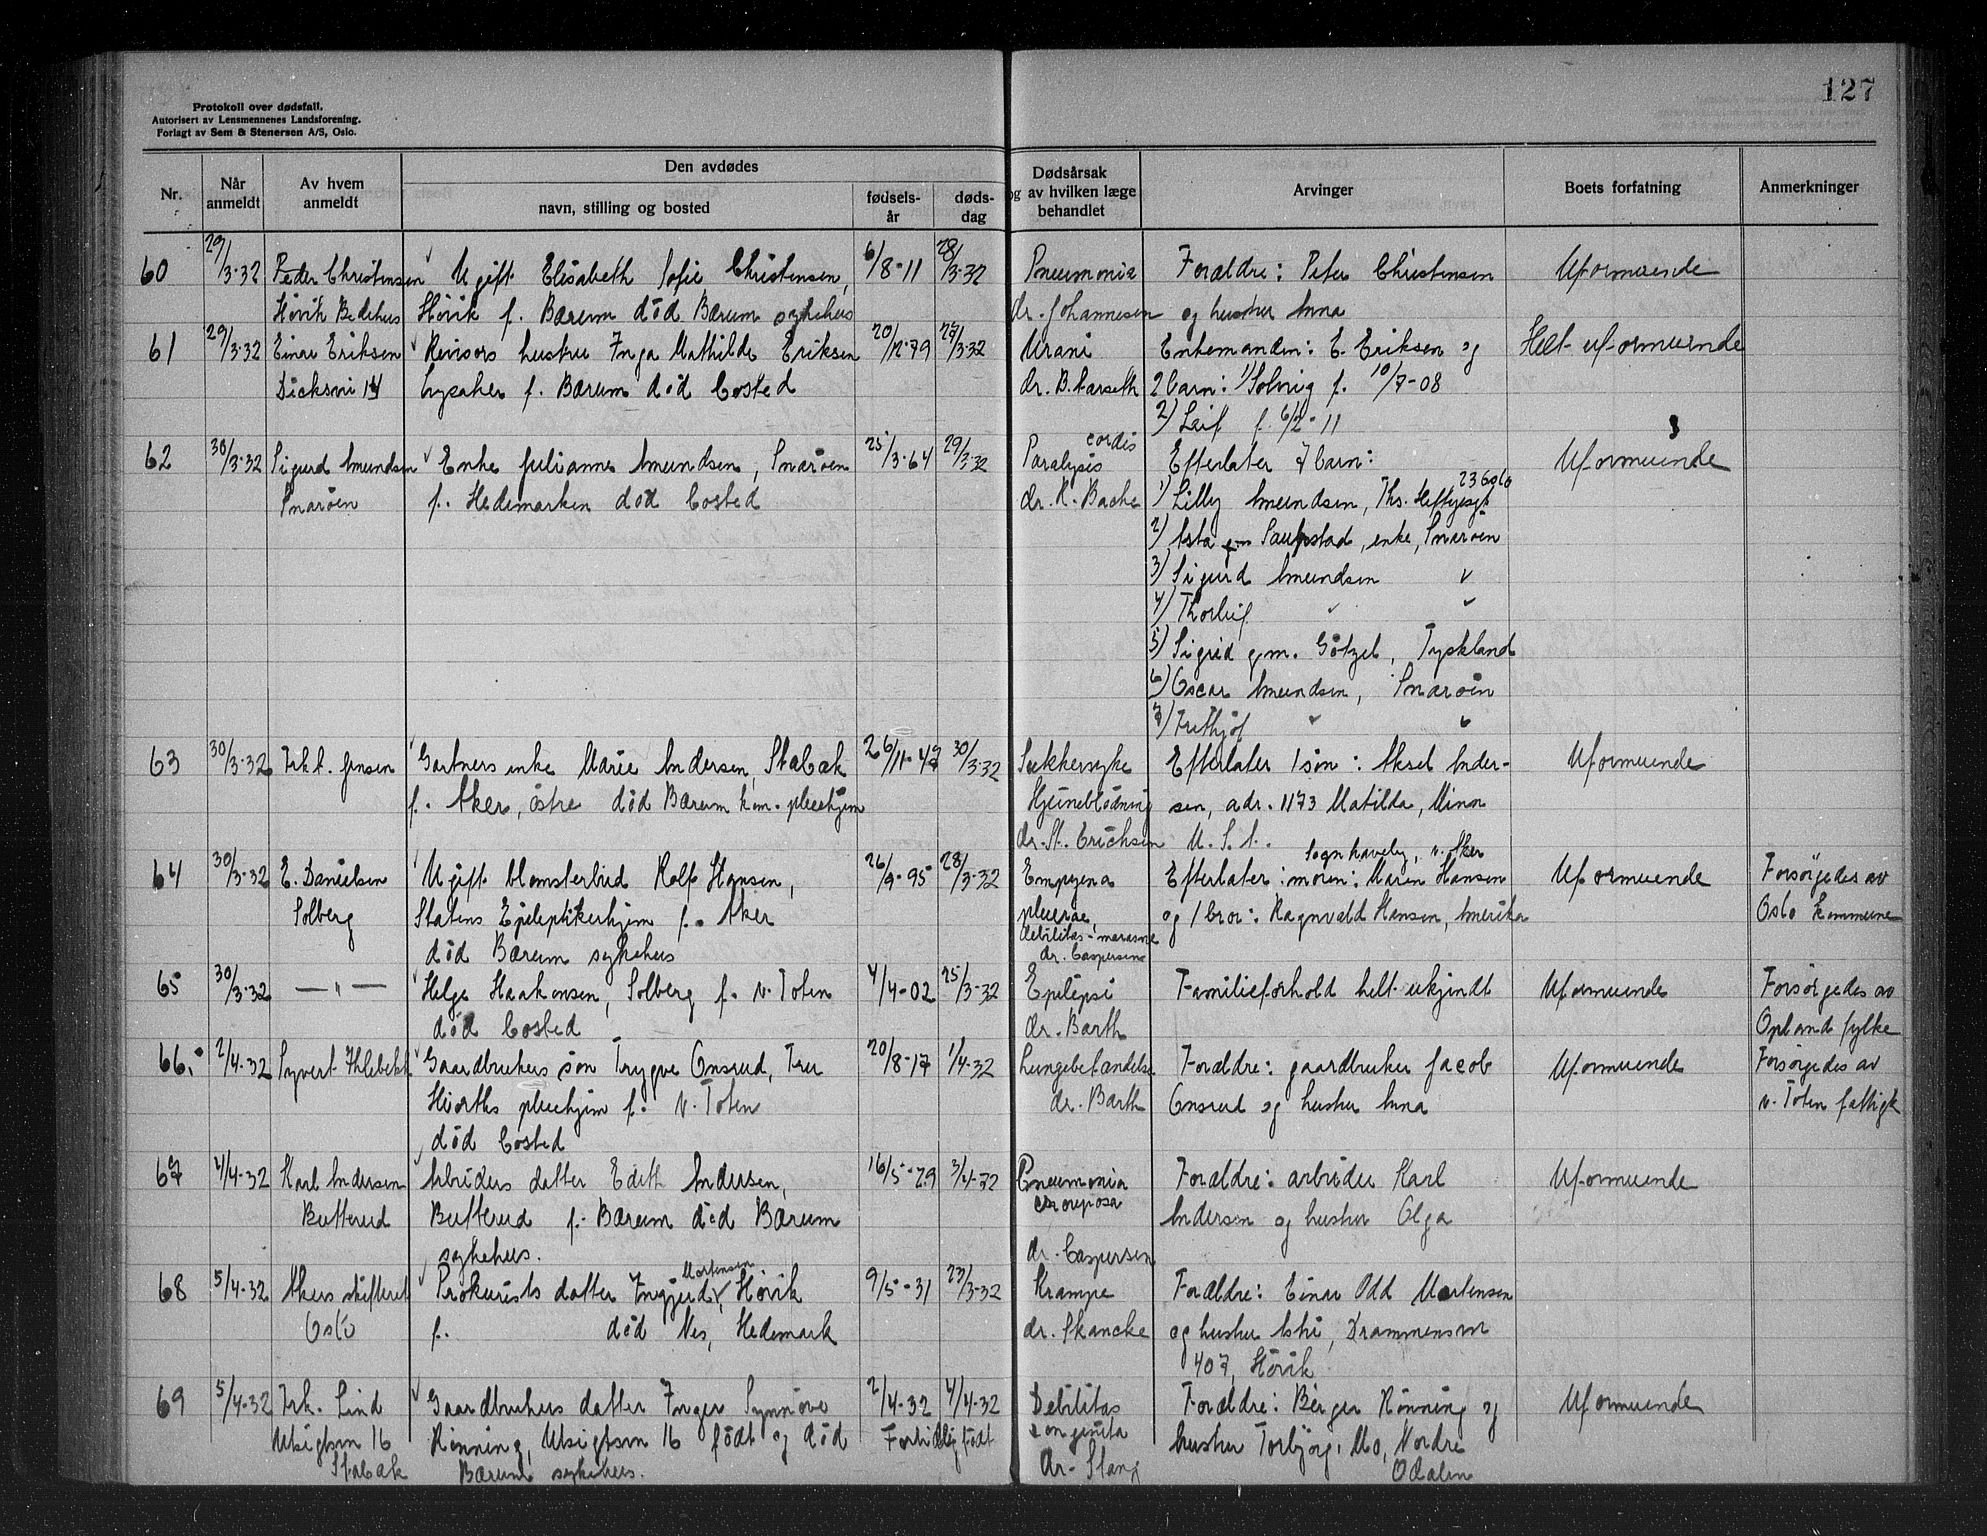 127
Protokoll over dødsfall.
Autorisert av Lensmennenes Landsforening.
Forlagt av Sem & Stenersen A/S, Oslo.
Nr.
Når anmeldt
Av hvem anmeldt
Den avdødes
navn, stilling og bosted
fødselsår
dødsdag
Dødsårsak og av hvilken læge behandlet
Arvinger
Boets forfatning
Anmerkninger
60 29/3-32 Peder Christensen Ugift Elisabeth Sofie Christensen, 6/8-11 28/3-32 Pneumonia Forældre: Peter Christensen Uformuende
Hövik Bedehus Hövik f. Bærum död Bærum sykehus dr. Johannesen og hustru Anna
61 29/3-32 Einar Eriksen Revisors hustru Inga Mathilde Eriksen 20/12-79 27/3-32 Urani Enkemanden: E. Eriksen og Helt uformuende
Dicksvei 14 Lysaker f. Bærum död bosted dr. B. Aarseth 2 barn: 1) Solveig f. 10/7-08
2) Leif f. 6/2-11
62 30/3-32 Sigurd Amundsen Enke Julianne Amundsen, Snaröen 25/3-64 29/3-32 Paralysis cordis Efterlater 7 barn: Uformuende
Snaröen f. Hedemarken död bosted dr. K. Bache 1) Lilly Amundsen, Ths. Heftyesgt 23 Oslo
2) Asta gm Saupstad, enke, Snaröen
3) Sigurd Amundsen "
4) Thorleif " "
5) Sigrid gm. Götzel, Tyskland
6) Oscar Amundsen, Snaröen
7) Frithjof " "
63 30/3-32 Frk A. Jensen Gartners enke Marie Andersen, Stabæk 26/11-47 30/3-32 Sukkersyke Efterlater 1 sön: Aksel Ander- Uformuende
f. Aker, östre död Bærum kom. pleiehjem Hjerneblödning sen, adr. 1173 Matilda, Minor
dr. St. Erichsen U. S. A.
Sognhaveby, v. Aker
64 30/3-32 E. Danielsen Ugift blomsterbud Rolf Hansen, 26/9-95 28/3-32 Empyema Efterlater: moren: Maren Hansen Uformuende Forsörgedes av
Solberg Statens Epileptikerhjem f. Aker pleurae, og 1 bror: Ragnvald Hansen, Amerika Oslo kommune
debilitas-marasme
död Bærum sykehus dr. Caspersen
65 30/3-32 — " — Helge Haakensen, Solberg f. v. Toten 4/4-02 25/3-32 Epilepsi Familieforhold helt ukjendt Uformuende Forsörgedes av
död bosted dr. Barth Opland fylke
66. 2/4-32 Syvert Kklebekk Gaardbrukers sön Trygve Onsrud, Fru 20/8-17 1/4-32 Lungebetændelse Forældre: gaardbruker Jacob Uformuende Forsörgedes av
Hiorths pleiehjem f. V. Toten dr. Barth Onsrud og hustru Anna v. Toten fattigk
död bosted
67 4/4-32 Karl Andersen Arbeiders datter Edith Andersen, 16/5-29 3/4-32 Pneumonia Forældre: arbeider Karl Uformuende
Butterud Butterud f. Bærum död Bærum crouposa Andersen og hustru Olga
sykehus. dr. Caspersen
68 5/4-32 Akers skifteret Prokurists datter Ingjerd Mortensen, Hövik 9/5-31 23/3-32 Krampe Forældre: Einar Odd Mortensen
Oslo f. död Nes, Hedemark dr. Skancke og hustru Astri, Drammensvn
407, Hövik
69 5/4-32 Frk. Lind Gaardbrukers datter Inger Synnöve 2/4-32 4/4-32 Debilitas Forældre: Berger Rönning og Uformuende
Utsigtsvn 16 Rönning, Utsigtsvn 16 födt og död Fortidlig födt congenita hustru Torbjörg, Mo, Nordre
Stabæk Bærum sykehus. dr. Stang Odalen